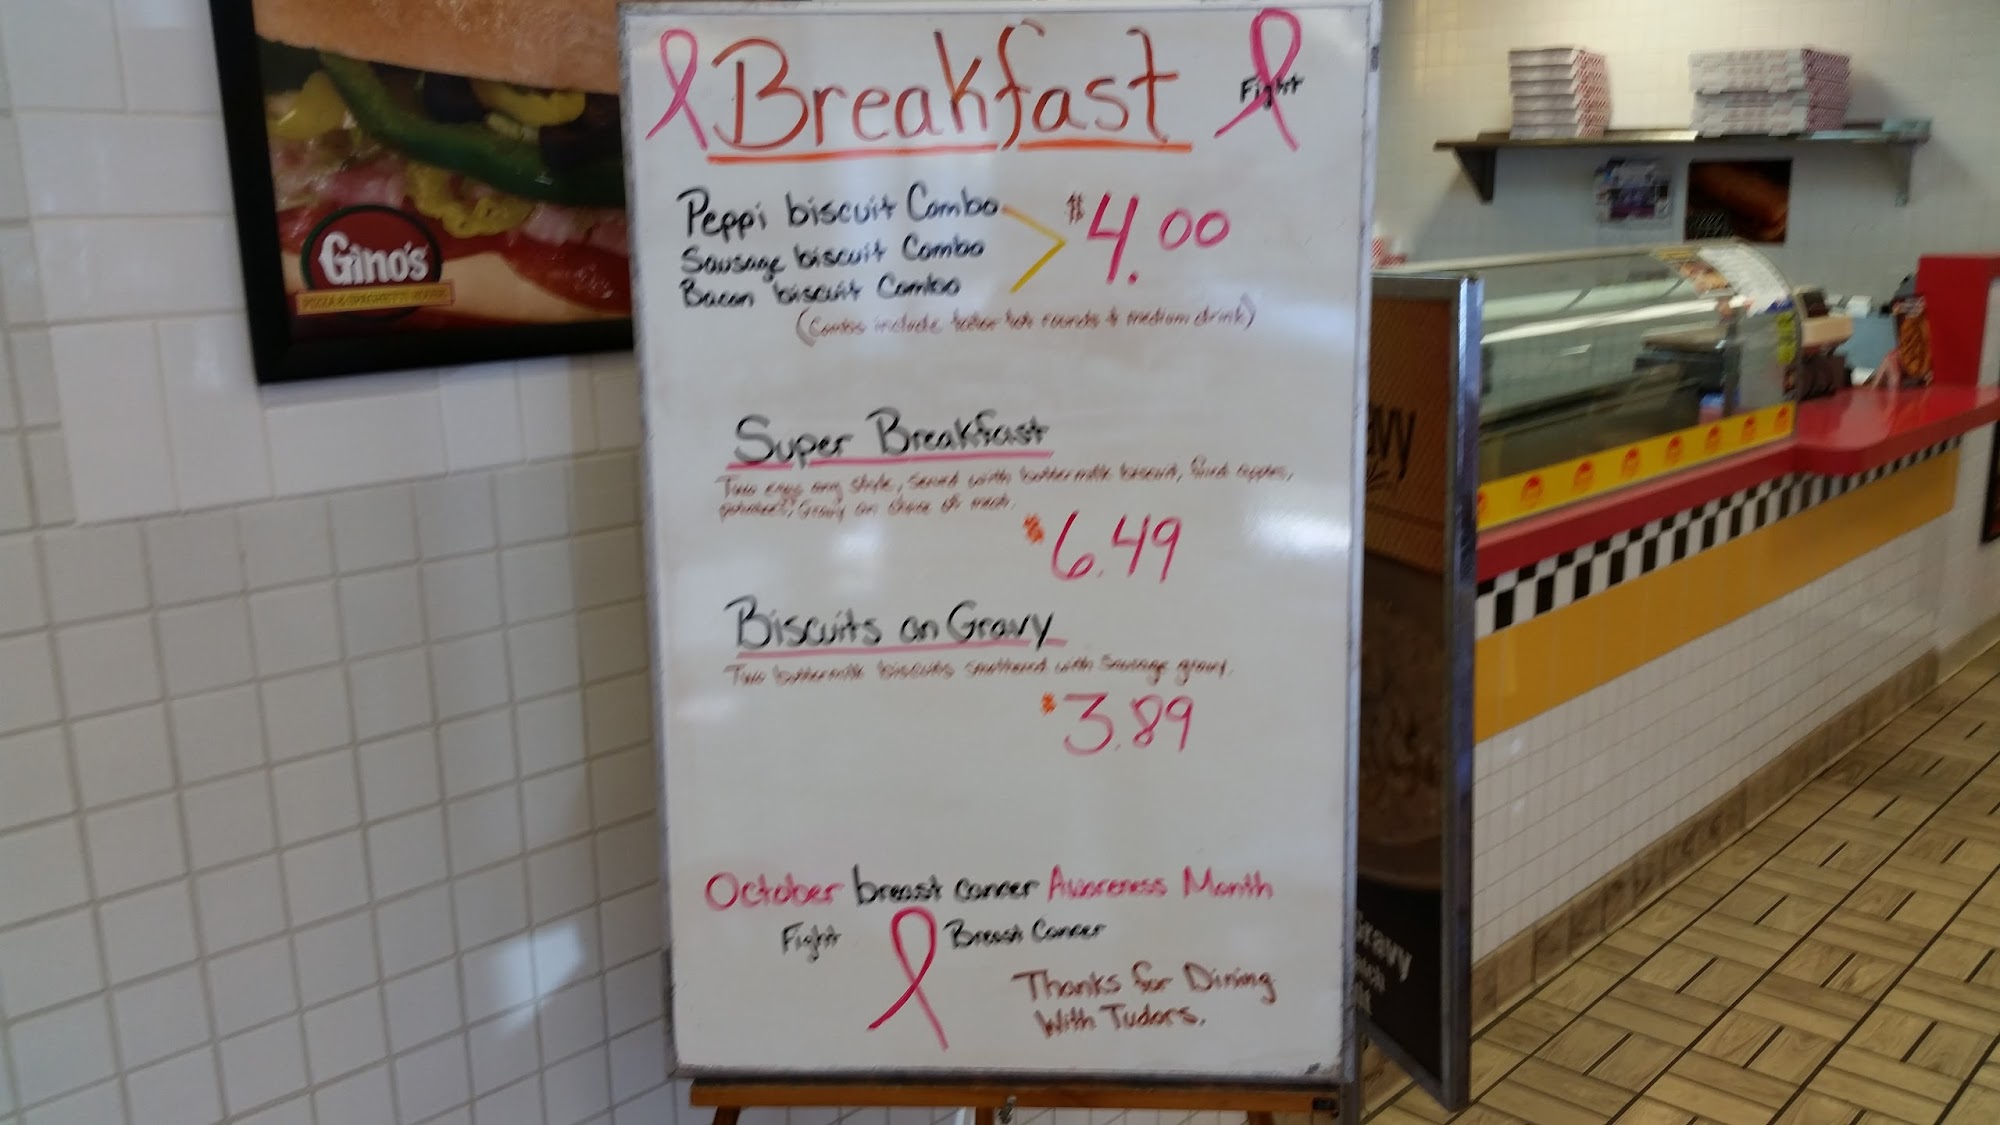 Breakfast
Fight
Peppi biscuit Combo
Sausage biscuit Combo
Bacon biscuit Combo
$4.00
(Combo include tater tot rounds & medium drink)
Super Breakfast
Two eggs any style, served with buttermilk biscuit, fried apples,
Gravy an choice of meat.
$6.49
Biscuits an Gravy
Two buttermilk biscuits smothered with sausage gravy.
$3.89
October breast cancer Awareness Month
Fight Breast Cancer
Thanks for Dining
With Tudors.
Gino's
PIZZA & SPAGHETTI HOUSE
Gravy